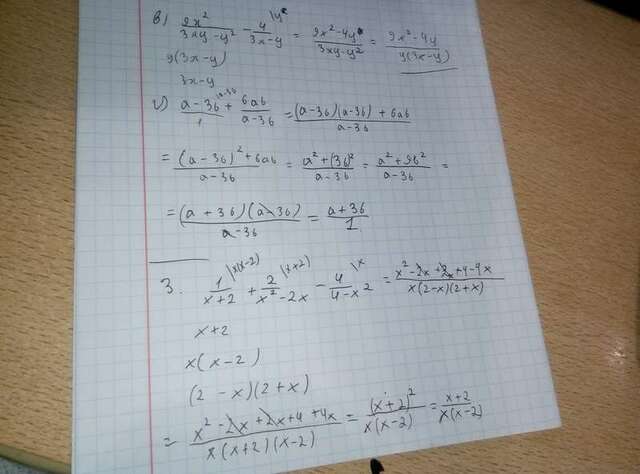 в) 9x²/(3xy-y²) - 4/(3x-y) \y = (9x²-4y)/(3xy-y²) = (9x²-4y)/(y(3x-y))
y(3x-y)
3x-y
г) (a-3b)/1 \a-3b + 6ab/(a-3b) = ((a-3b)(a-3b)+6ab)/(a-3b)
= ((a-3b)²+6ab)/(a-3b) = (a²+(3b)²)/(a-3b) = (a²+9b²)/(a-3b) =
= ((a+3b)(a-3b))/(a-3b) = (a+3b)/1
3. 1/(x+2) \x(x-2) + 2/(x²-2x) \(x+2) - 4/(4-x²) \x = (x²-2x+2x+4-4x)/(x(2-x)(2+x))
x+2
x(x-2)
(2-x)(2+x)
= (x²-2x+2x+4+4x)/(x(x+2)(x-2)) = (x+2)²/(x(x-2)) = (x+2)/(x(x-2))